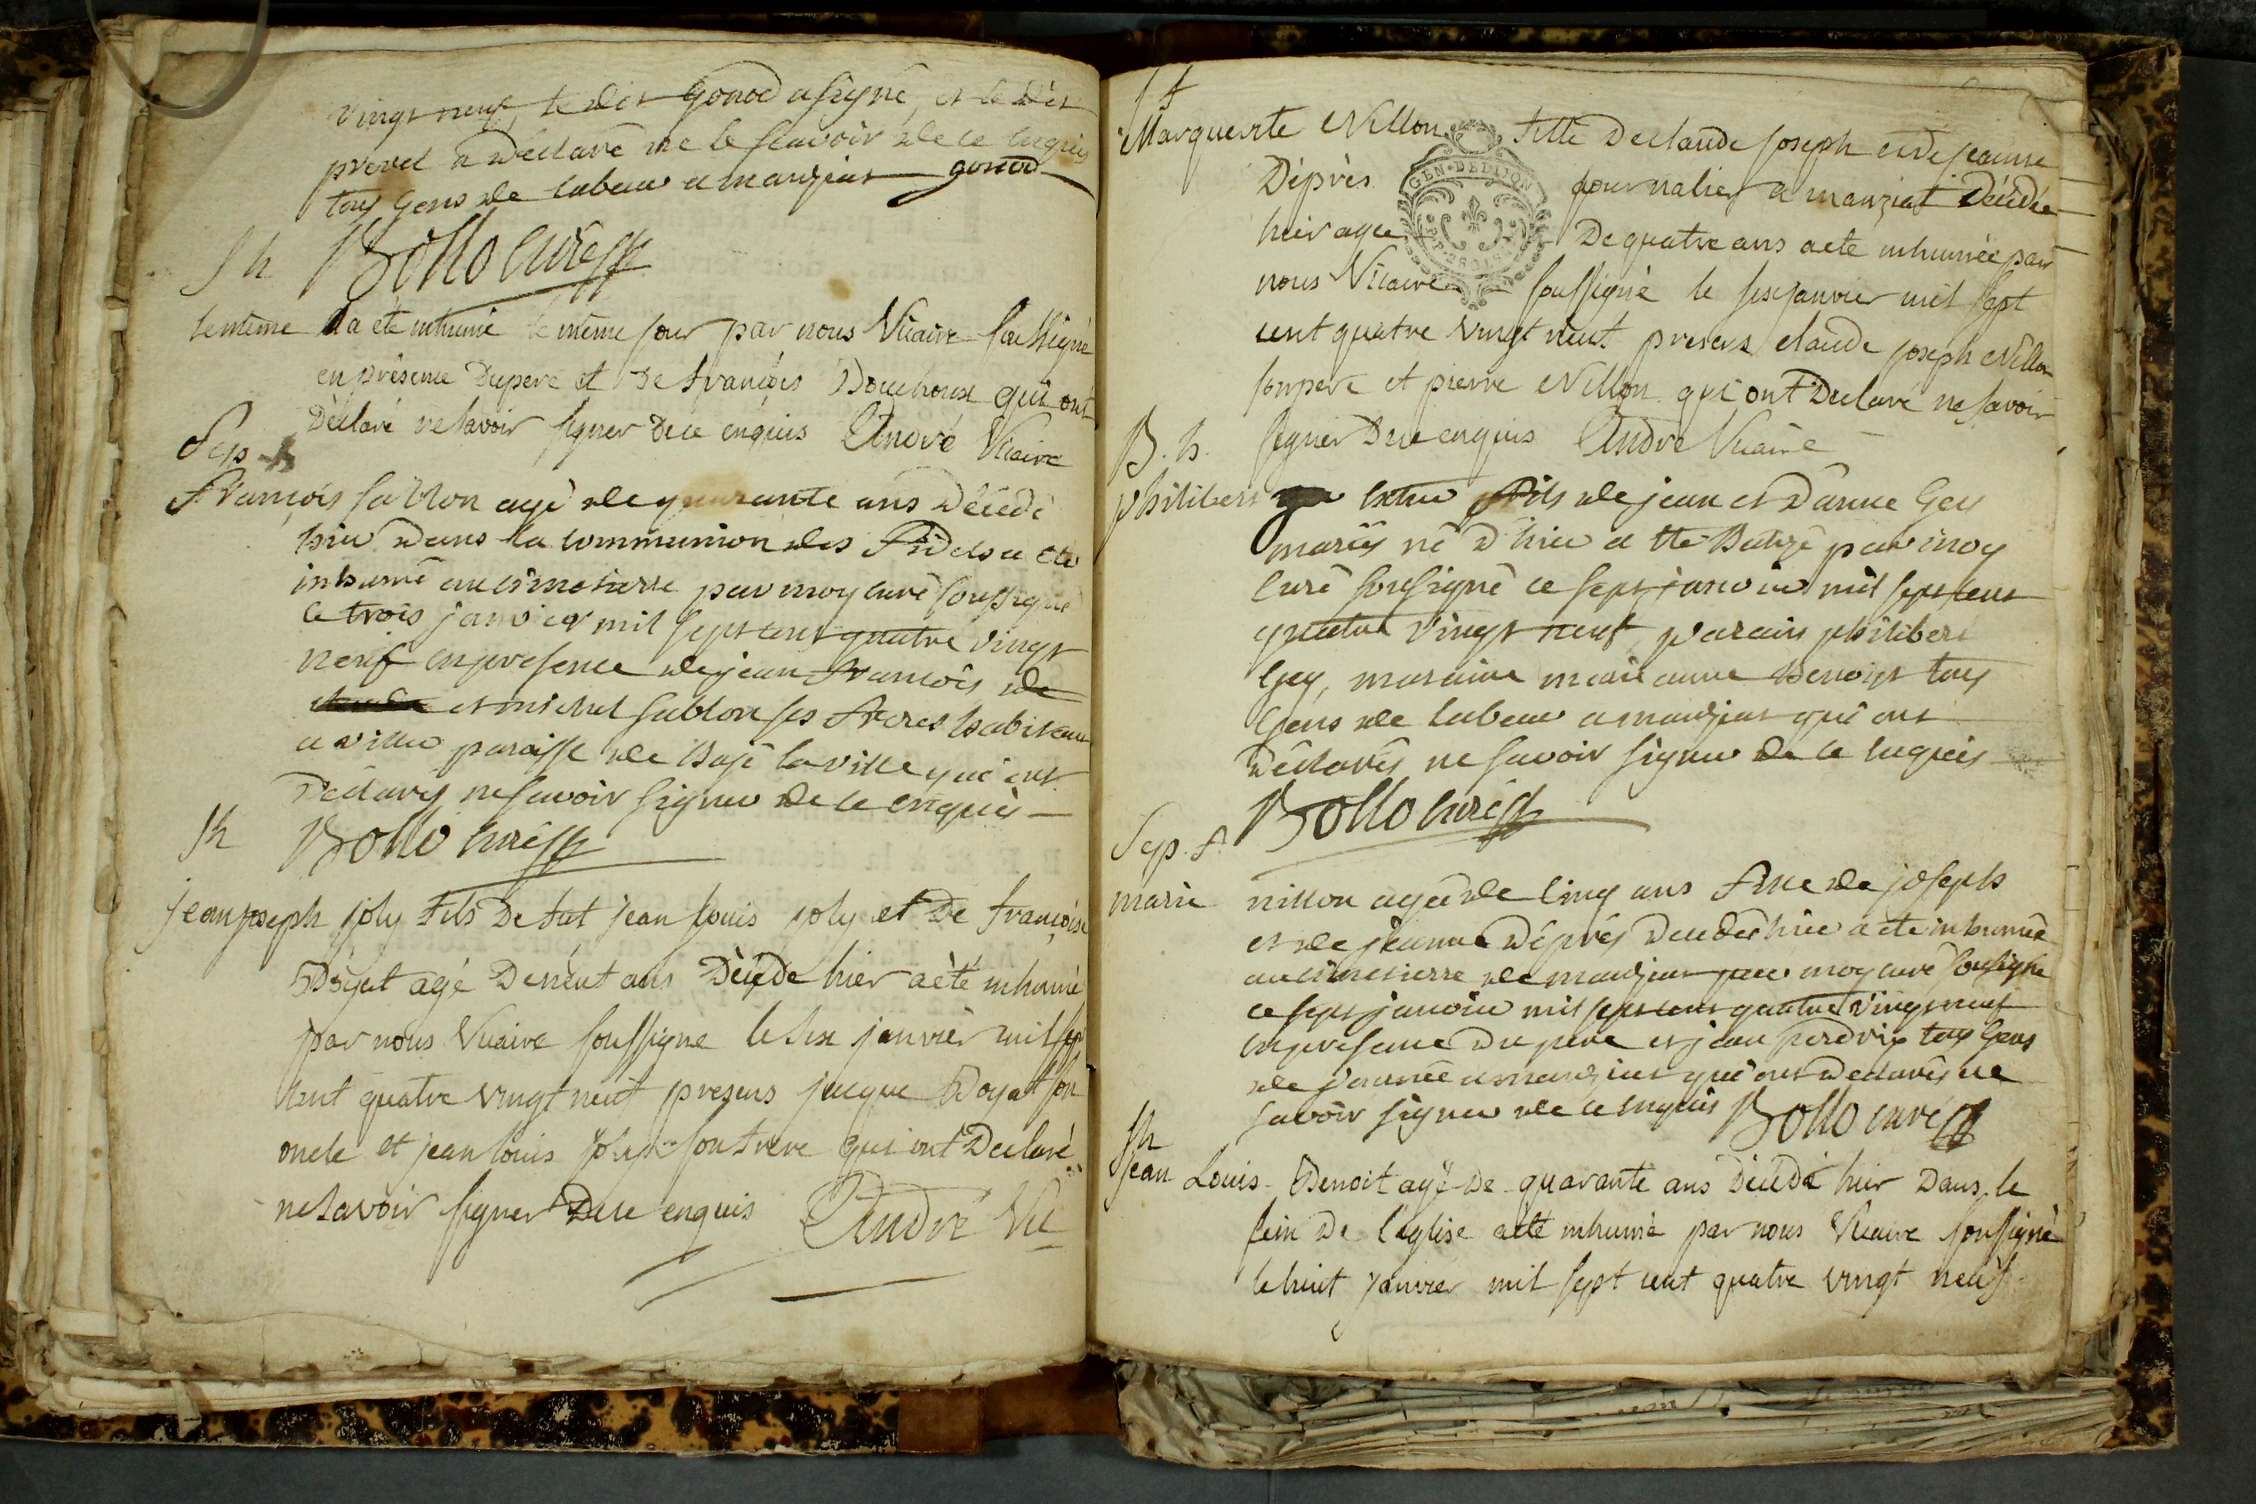 vingt neuf, le dit gonod a signé, et le dit
prevel a declaré ne le scavoir de ce enquis
tous gens de labeur a manziat gonod
S h Bollo curé
le meme a été inhumé le même jour par nous Vicaire soussigné
en présence du pere et de françois Douchoux qui ont
Déclaré ne savoir signer de ce enquis André Vicaire
Sep h
François sablon agé de quarante ans décédé
hier dans la communion des fidels a eté
inhumé au cimetierre par moy curé soussigné
ce trois janvier mil sept cent quatre vingt
neuf en presence de jean françois de
et michel sablon ses freres habitant
a paroisse de Bagé la ville qui ont
Déclarés ne savoir signer de ce enquis
Sh Bollo curé
jean joseph joly fils de fut jean louis joly et De françoise
Doyat agé De neuf ans Décédé hier a été inhumé
par nous Vicaire soussigné le six janvier mil sept
cent quatre vingt neuf presens jacque Doyat son
oncle et jean louis joly son frere qui ont Declaré
ne savoir signer De ce enquis André Vic
S f
Marguerite Nillon fille De claude joseph et de jeanne
Déprés journalier a manziat Décédée
hier agée De quatre ans a eté inhumée par
nous Vicaire soussigné le six janvier mil sept
cent quatre vingt neuf presens claude joseph Nillon
son pere et pierre Nillon qui ont Declaré ne savoir
signer De ce enquis André Vicaire
B. h.
philibert fils de jean et d'anne Gey
mariés né d'hier a eté Batizé par moy
Curé soussigné ce sept janvier mil sept cent
quatre vingt neuf parain philibert
Gey, maraine marie anne Benoist tous
Gens de labeur a manziat qui ont
Déclarés ne savoir signer de ce enquis
Bollo curé
Sep. f.
marie nillon agée de cinq ans fille de joseph
et de jeanne déprés decedée hier a eté inhumée
au cimetierre de manziat par moy curé soussigné
ce sept janvier mil sept cent quatre vingt neuf
en presence du pere et jean perdrix tous Gens
de journée a manziat qui ont declarés ne
savoir signer de ce enquis Bollo curé
Sh
Jean Louis Benoit agé De quarante ans Décédé hier Dans le
sein De l'eglise a été inhumé par nous Vicaire soussigné
le huit janvier mil sept cent quatre vingt neuf